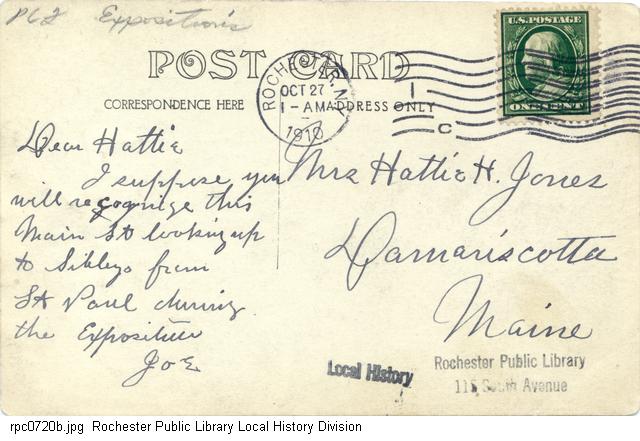 PC2 Expositions
POST CARD
CORRESPONDENCE HERE
ADDRESS ONLY
ROCHESTER, N.Y.
OCT 27
1 - AM
1910
C
U.S. POSTAGE
ONE CENT
Dear Hattie
I suppose you
will recognize this
Main St looking up
to Sibleys from
St Paul during
the Exposition
Joe
Mrs Hattie H. Jones
Damariscotta
Maine
Local History
Rochester Public Library
115 South Avenue
rpc0720b.jpg Rochester Public Library Local History Division